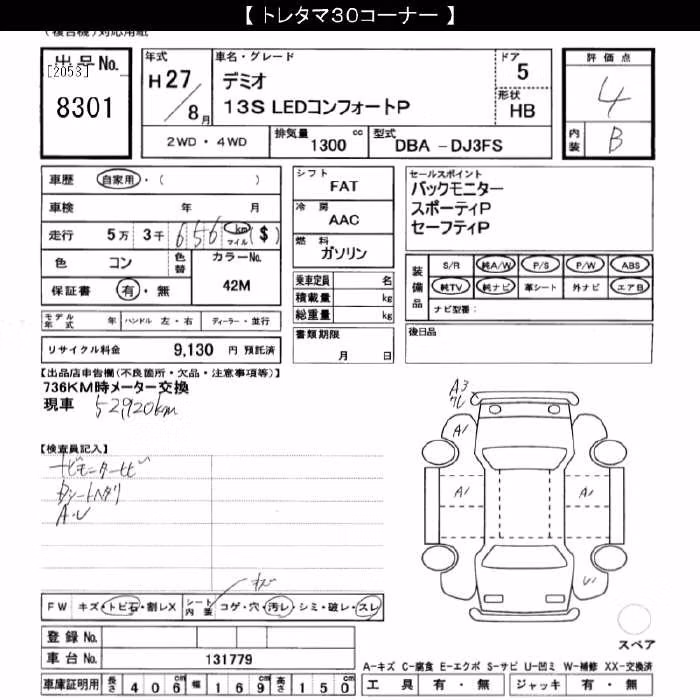 【 トレタマ30コーナー 】
(複合機)対応用紙
出品No.
[2053]
8301
年式
H27/8月
車名・グレード
デミオ
13S LEDコンフォートP
ドア
5
形状
HB
評価点
4
内装
B
2WD・4WD
排気量 1300 cc
型式 DBA -DJ3FS
車歴 自家用・( )
車検 年 月
走行 5万 3千 656 km マイル ($)
色 コン
色替
カラーNo.
42M
保証書 有・無
モデル年式 年 ハンドル 左・右 ディーラー・並行
リサイクル料金 9,130 円 預託済
シフト
FAT
冷房
AAC
燃料
ガソリン
乗車定員 名
積載量 kg
総重量 kg
書類期限
月 日
セールスポイント
バックモニター
スポーティP
セーフティP
装備品
S/R 純A/W P/S P/W ABS
純TV 純ナビ 革シート 外ナビ エアB
ナビ型番:
後日品
【出品店申告欄(不良箇所・欠品・注意事項等)】
736KM時メーター交換
現車 52,920km
【検査員記入】
ナビモニターヒビ
Dシートヘタリ
A・U
A3
ワレ
A1
A1
A1
U
キズ
FW キズ・トビ石・割レX
シート内装 コゲ・穴・汚レ・シミ・破レ・スレ
登録No.
車台No. 131779
車庫証明用 長さ 406cm 幅 169cm 高さ 150cm
スペア
A-キズ C-腐食 E-エクボ S-サビ U-凹ミ W-補修 XX-交換済
工具 有・無 ジャッキ 有・無